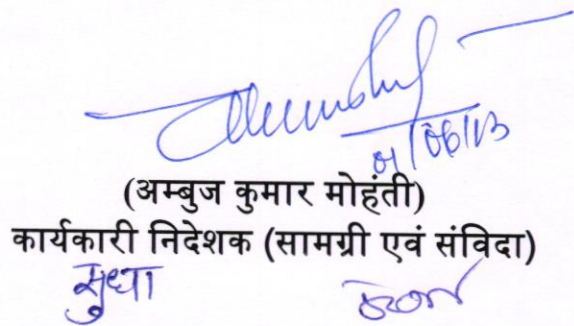 01/06/13
(अम्बुज कुमार मोहंती)
कार्यकारी निदेशक (सामग्री एवं संविदा)
सुधा